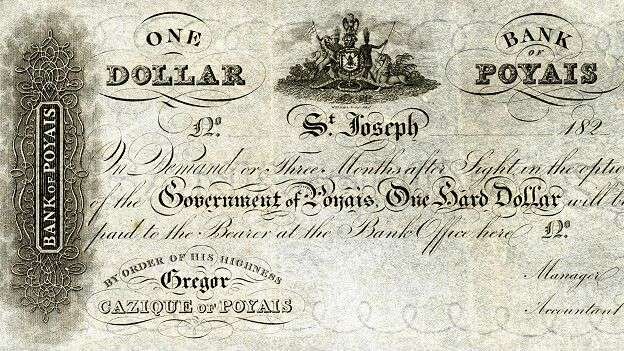 ONE
DOLLAR
BANK
OF
POYAIS
BANK OF POYAIS
No. St. Joseph 182
On Demand or Three Months after Sight in the optio
of the Government of Poyais, One Hard Dollar will b
paid to the Bearer at the Bank Office here No.
BY ORDER OF HIS HIGHNESS
Gregor
CAZIQUE OF POYAIS
Manager
Accountant